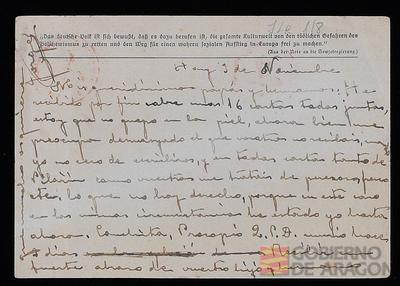 „Das deutsche Volk ist sich bewußt, daß es dazu berufen ist, die gesamte Kulturwelt von den tödlichen Gefahren des
Bolschewismus zu retten und den Weg für einen wahren sozialen Aufstieg in Europa frei zu machen."
(Aus der Note an die Sowjetregierung)
Hoy 3 de Noviembre
queridísimos papás y hermanos: He
recibido por fin sobre unas 16 cartas todas juntas,
estoy que no quepo en la piel, ahora bien me
preocupa demasiado el que vosotros no recibáis, muy
yo no ceso de escribiros, y en todas cartas tanto de
Pilarín como vuestras me tratáis de perezoso, pero
etc. lo que no hay derecho, pues en este caso
en las mismas circunstancias he estado yo hasta
ahora. Conchita, Q.P.D. murió hace
días
fuerte abrazo de vuestro hijo y
GOBIERNO
DE ARAGON